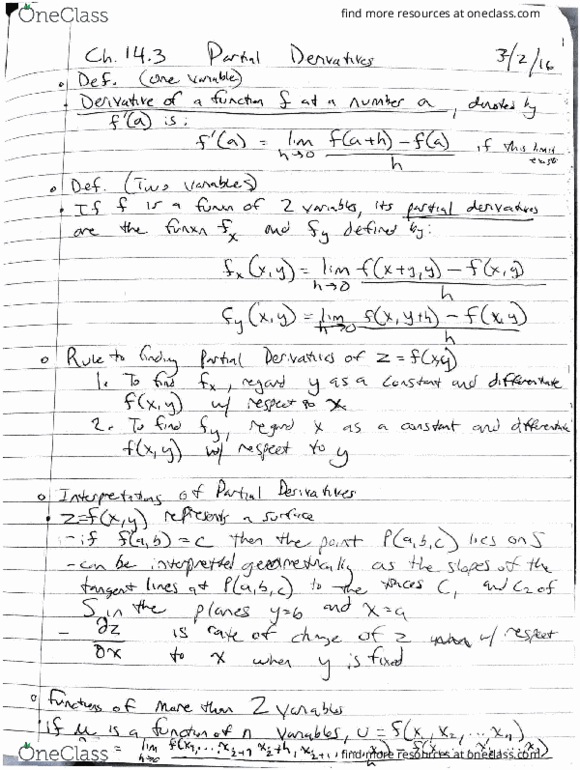 OneClass
find more resources at oneclass.com
Ch. 14.3 Partial Derivatives 3/2/16
Def. (one variable)
Derivative of a function f at a number a, denoted by
f'(a) is:
f'(a) = lim h→0 f(a+h) - f(a) / h if this limit exists
Def. (Two variables)
If f is a funxn of 2 variables, its partial derivatives
are the funxn fx and fy defined by:
fx(x,y) = lim h→0 f(x+y,y) - f(x,y) / h
fy(x,y) = lim h→0 f(x,y+h) - f(x,y) / h
Rule to finding Partial Derivatives of z = f(x,y)
1. To find fx, regard y as a constant and differentiate
f(x,y) w/ respect to x
2. To find fy, regard x as a constant and differentiate
f(x,y) w/ respect to y
Interpretations of Partial Derivatives
z=f(x,y) represents a surface
- if f(a,b) = c then the point P(a,b,c) lies on S
- can be interpreted geometrically as the slopes of the
tangent lines at P(a,b,c) to the traces C1 and C2 of
S in the planes y=b and x=a
- ∂z/∂x is rate of change of z w/ respect
to x when y is fixed
Functions of more than 2 variables
if u is a function of n variables, u = f(x1, x2, ... xn)
OneClass
find more resources at oneclass.com